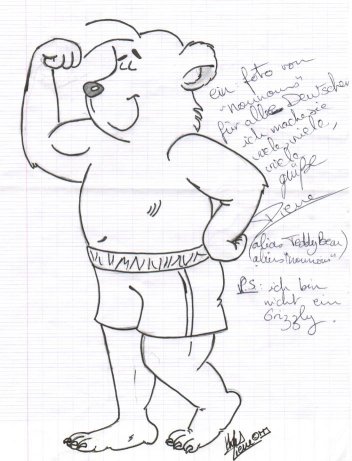 ein foto von
"nounours"
für alle Deutschen
ich mache sie
viele, viele,
viele
grüße
Pierre
(alias TeddyBear)
alias "nounours"
PS: ich bin
nicht ein
Grizzly.